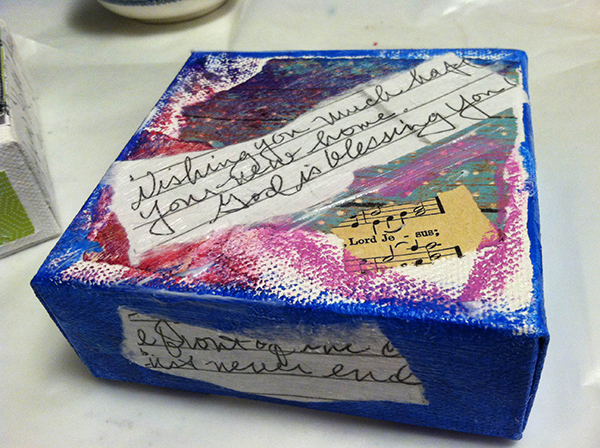 Wishing you much hap
your new home.
God is blessing you
Lord Je - sus;
e front of me
ust never end